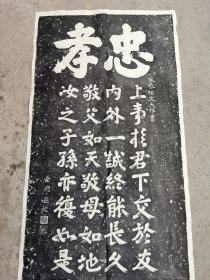 忠孝
上事於君下交於友
内外一誠終能長久
敬父如天敬母如地
汝之子孫亦復如是